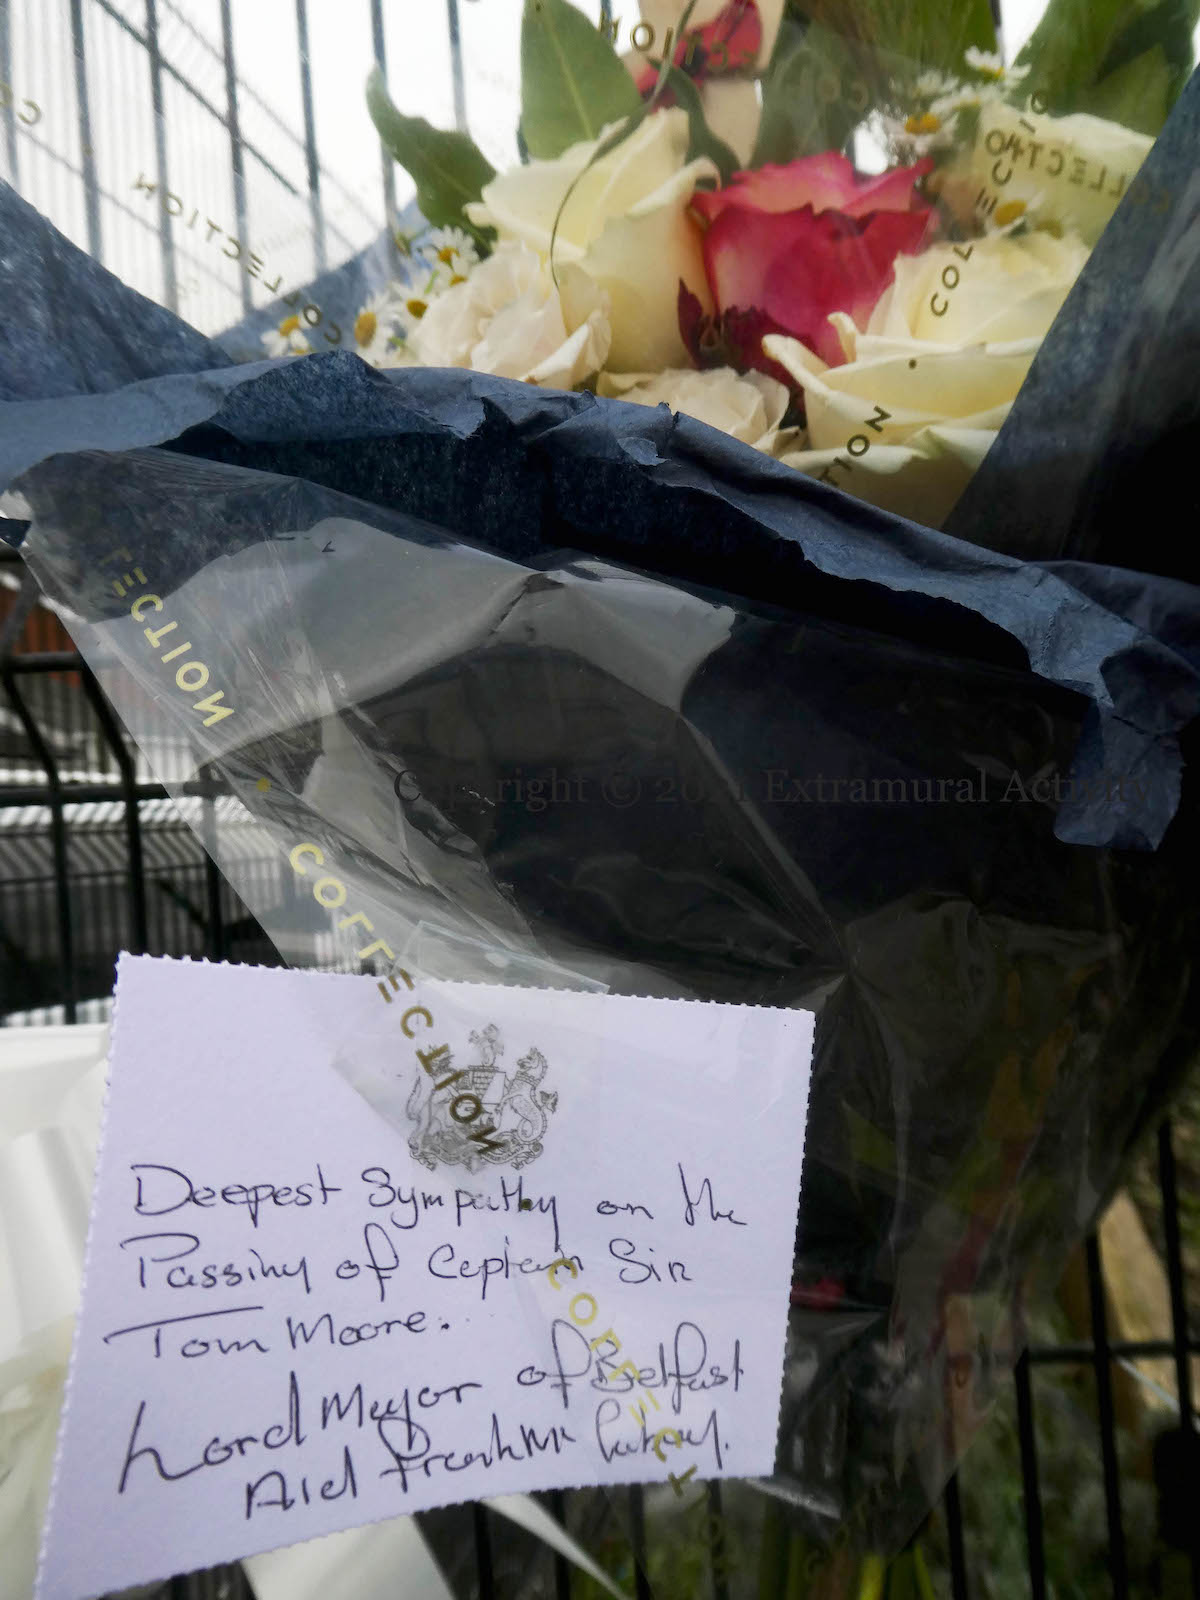 COLLECTION
COLLECTION
COLLECTION
COLLECTION
Copyright © 2021 Extramural Activity
COLLECTION
Deepest Sympathy on the
Passing of Captain Sir
Tom Moore.
Lord Mayor of Belfast
Ald Frank Mc
COLLECT